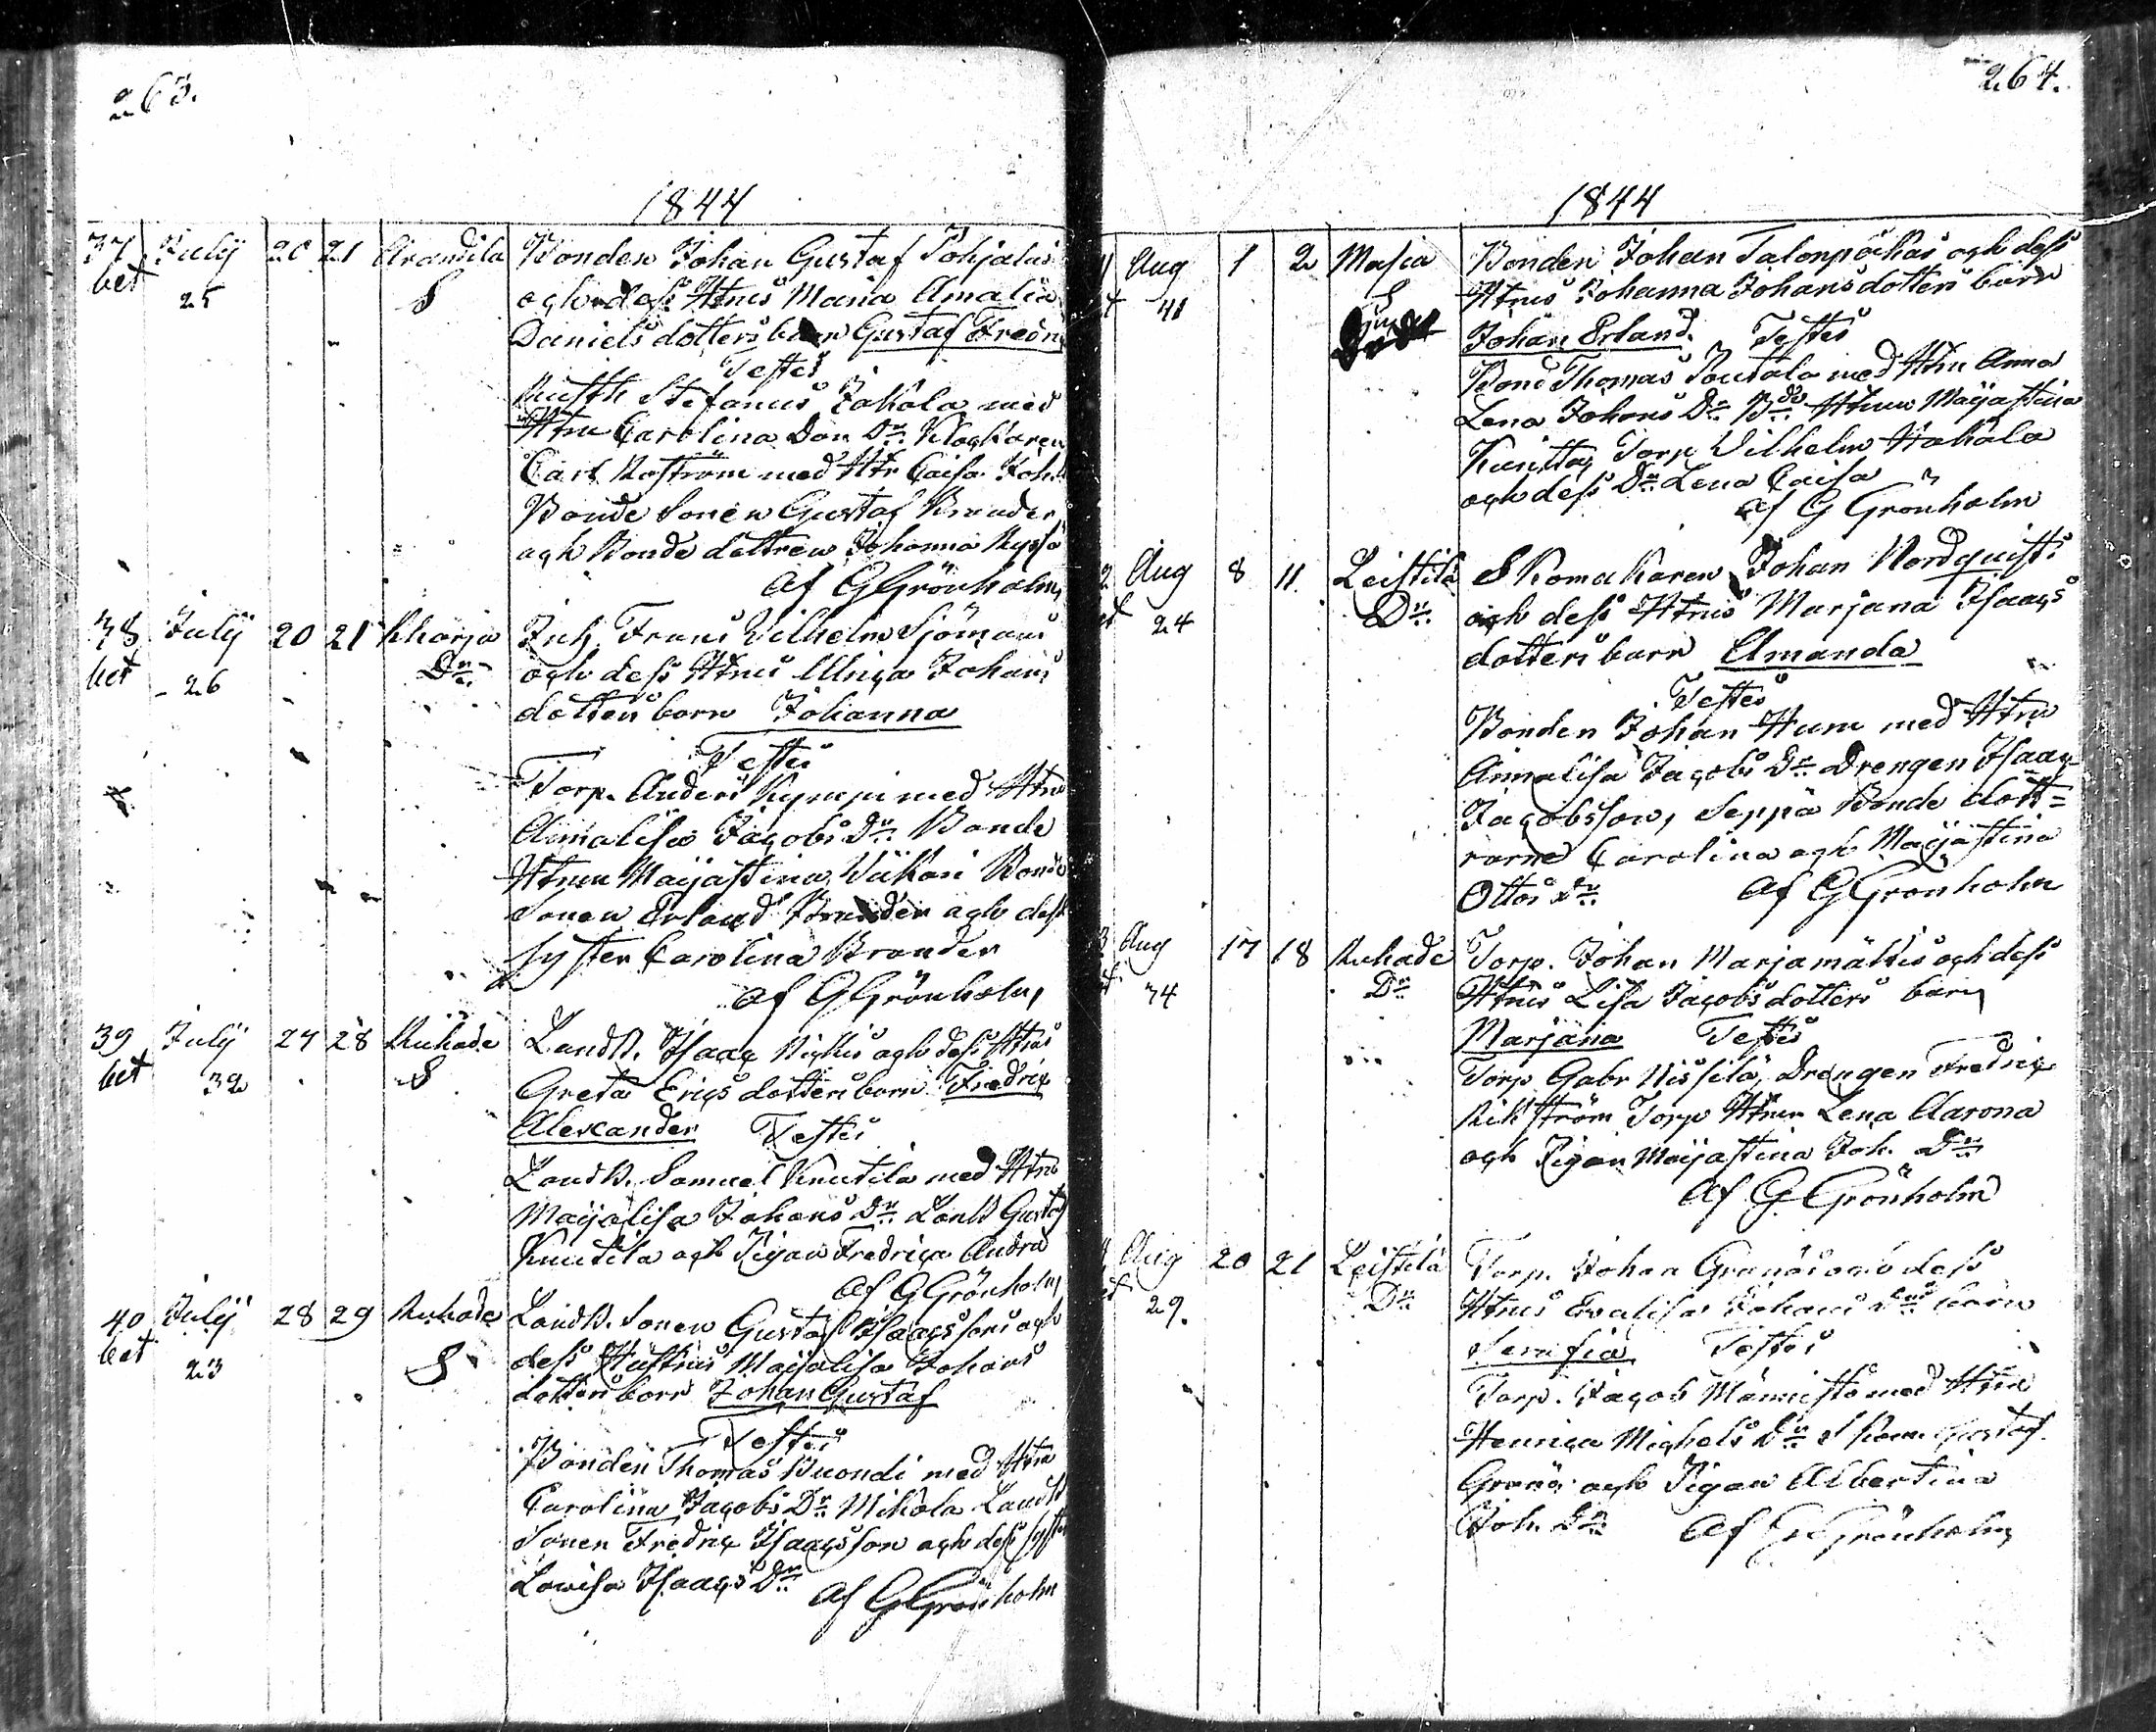 263.
1844
37 July 20 21 Arandila Bonden Johan Gustaf Pohjalas
bet 25 S och dess Htrus Maria Amalia
Daniels dotters barn Gustaf Fredri
Testes
Stefanus Jakola med
Htru Carolina Dan Dr. Klockaren
Carl Roström med Htr Caisa Joh.
Bonde Sonen Gustaf Brander
och Bonde dottren Johanna
Af G Grönholm
38 July 20 21 Kharja Inh. Frans Wilhelm Sjömans
bet 26 Dr. och dess Htrus Ulrica Johans
dotters barn Johanna
Testes
Torp. Anders Kympi med Htru
Annalisa Jacobs Dr. Bonde
Htrun Maijastina Wikari Bonde
Sonen Erland Brander och dess
Syster Carolina Brander
af G Grönholm
39 July 27 28 Ruhade LandB. Isaac och dess Htrus
bet 32 S Greta Erics dotters barn Fredric
Alexander Testes
LandB. Samuel Knutila med Htru
Maijalisa Johans Dr. LandB Gustaf
Knutila och Pigan Fredrica Andrae
af G Grönholm
40 July 28 29 Ruhade LandB. Sonen Gustaf Isaacssons och
bet 23 S dess Hustrus Maijalisa Johans
dotters barn Johan Gustaf
Testes
Bonden Thomas Ruondi med Htru
Carolina Jacobs Dr. Mikola LandB
Sonen Fredric Isaacsson och dess syster
Lowisa Isaacs Dr. af G Grönholm
264.
1844
Aug 1 2 Masia Bonden Johan Talonpoikas och dess
41 S Htrus Johanna Johans dotters barn
Johan Erland. Testes
Bond Thomas Poutala med Htru Anna
Lena Johans Dr. Bde Htrun Maijastina
Knuttas Torp Wilhelm Hakala
och dess Dr. Lena Caisa
af G Grönholm
Aug 8 11. Leistilä Skomakaren Johan Nordquists
24 Dr. och dess Htrus Marjana Isaacs
dotters barn Amanda
Testes
Bonden Johan Hum med Htru
Annalisa Jacobs Dr. Drengen Isaac
Jacobsson, Seppä Bonde dott=
rarne Carolina och Maijastina
Ottos Dr. af G Grönholm
Aug 17 18 Ruhade Torp. Johan Marjamäkis och dess
34 Dr. Htrus Lisa Jacobs dotters barn
Marjana Testes
Torp. Gabr Nissilä, Drengen Fredric
Rikström Torp Htrun Lena Aarona
och Pigan Maijastina Joh. Dr.
Af G Grönholm
Aug 20 21 Leistilä Torp. Johan Granös och dess
29. Dr. Htrus Evalisa Johans Drs barn
Serafia Testes
Torp. Jacob Männistö med Htru
Henrica Michels Dr. Gustaf
Granö och Pigan Albertina
Joh. Dr. Af G Grönholm